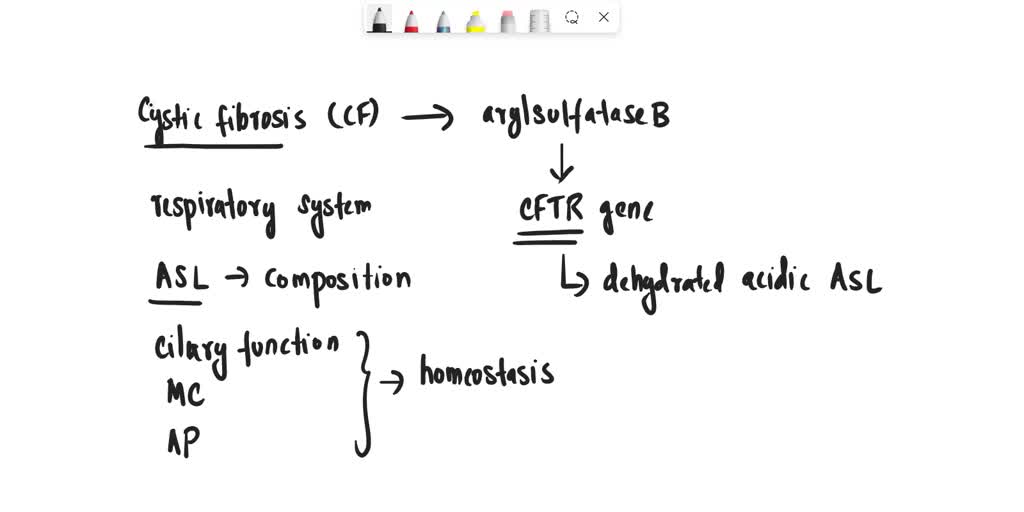 Cystic fibrosis (CF) → arylsulfatase B
↓
respiratory system CFTR gene
ASL → composition ↳ dehydrated acidic ASL
cilary function
MC } → homeostasis
AP